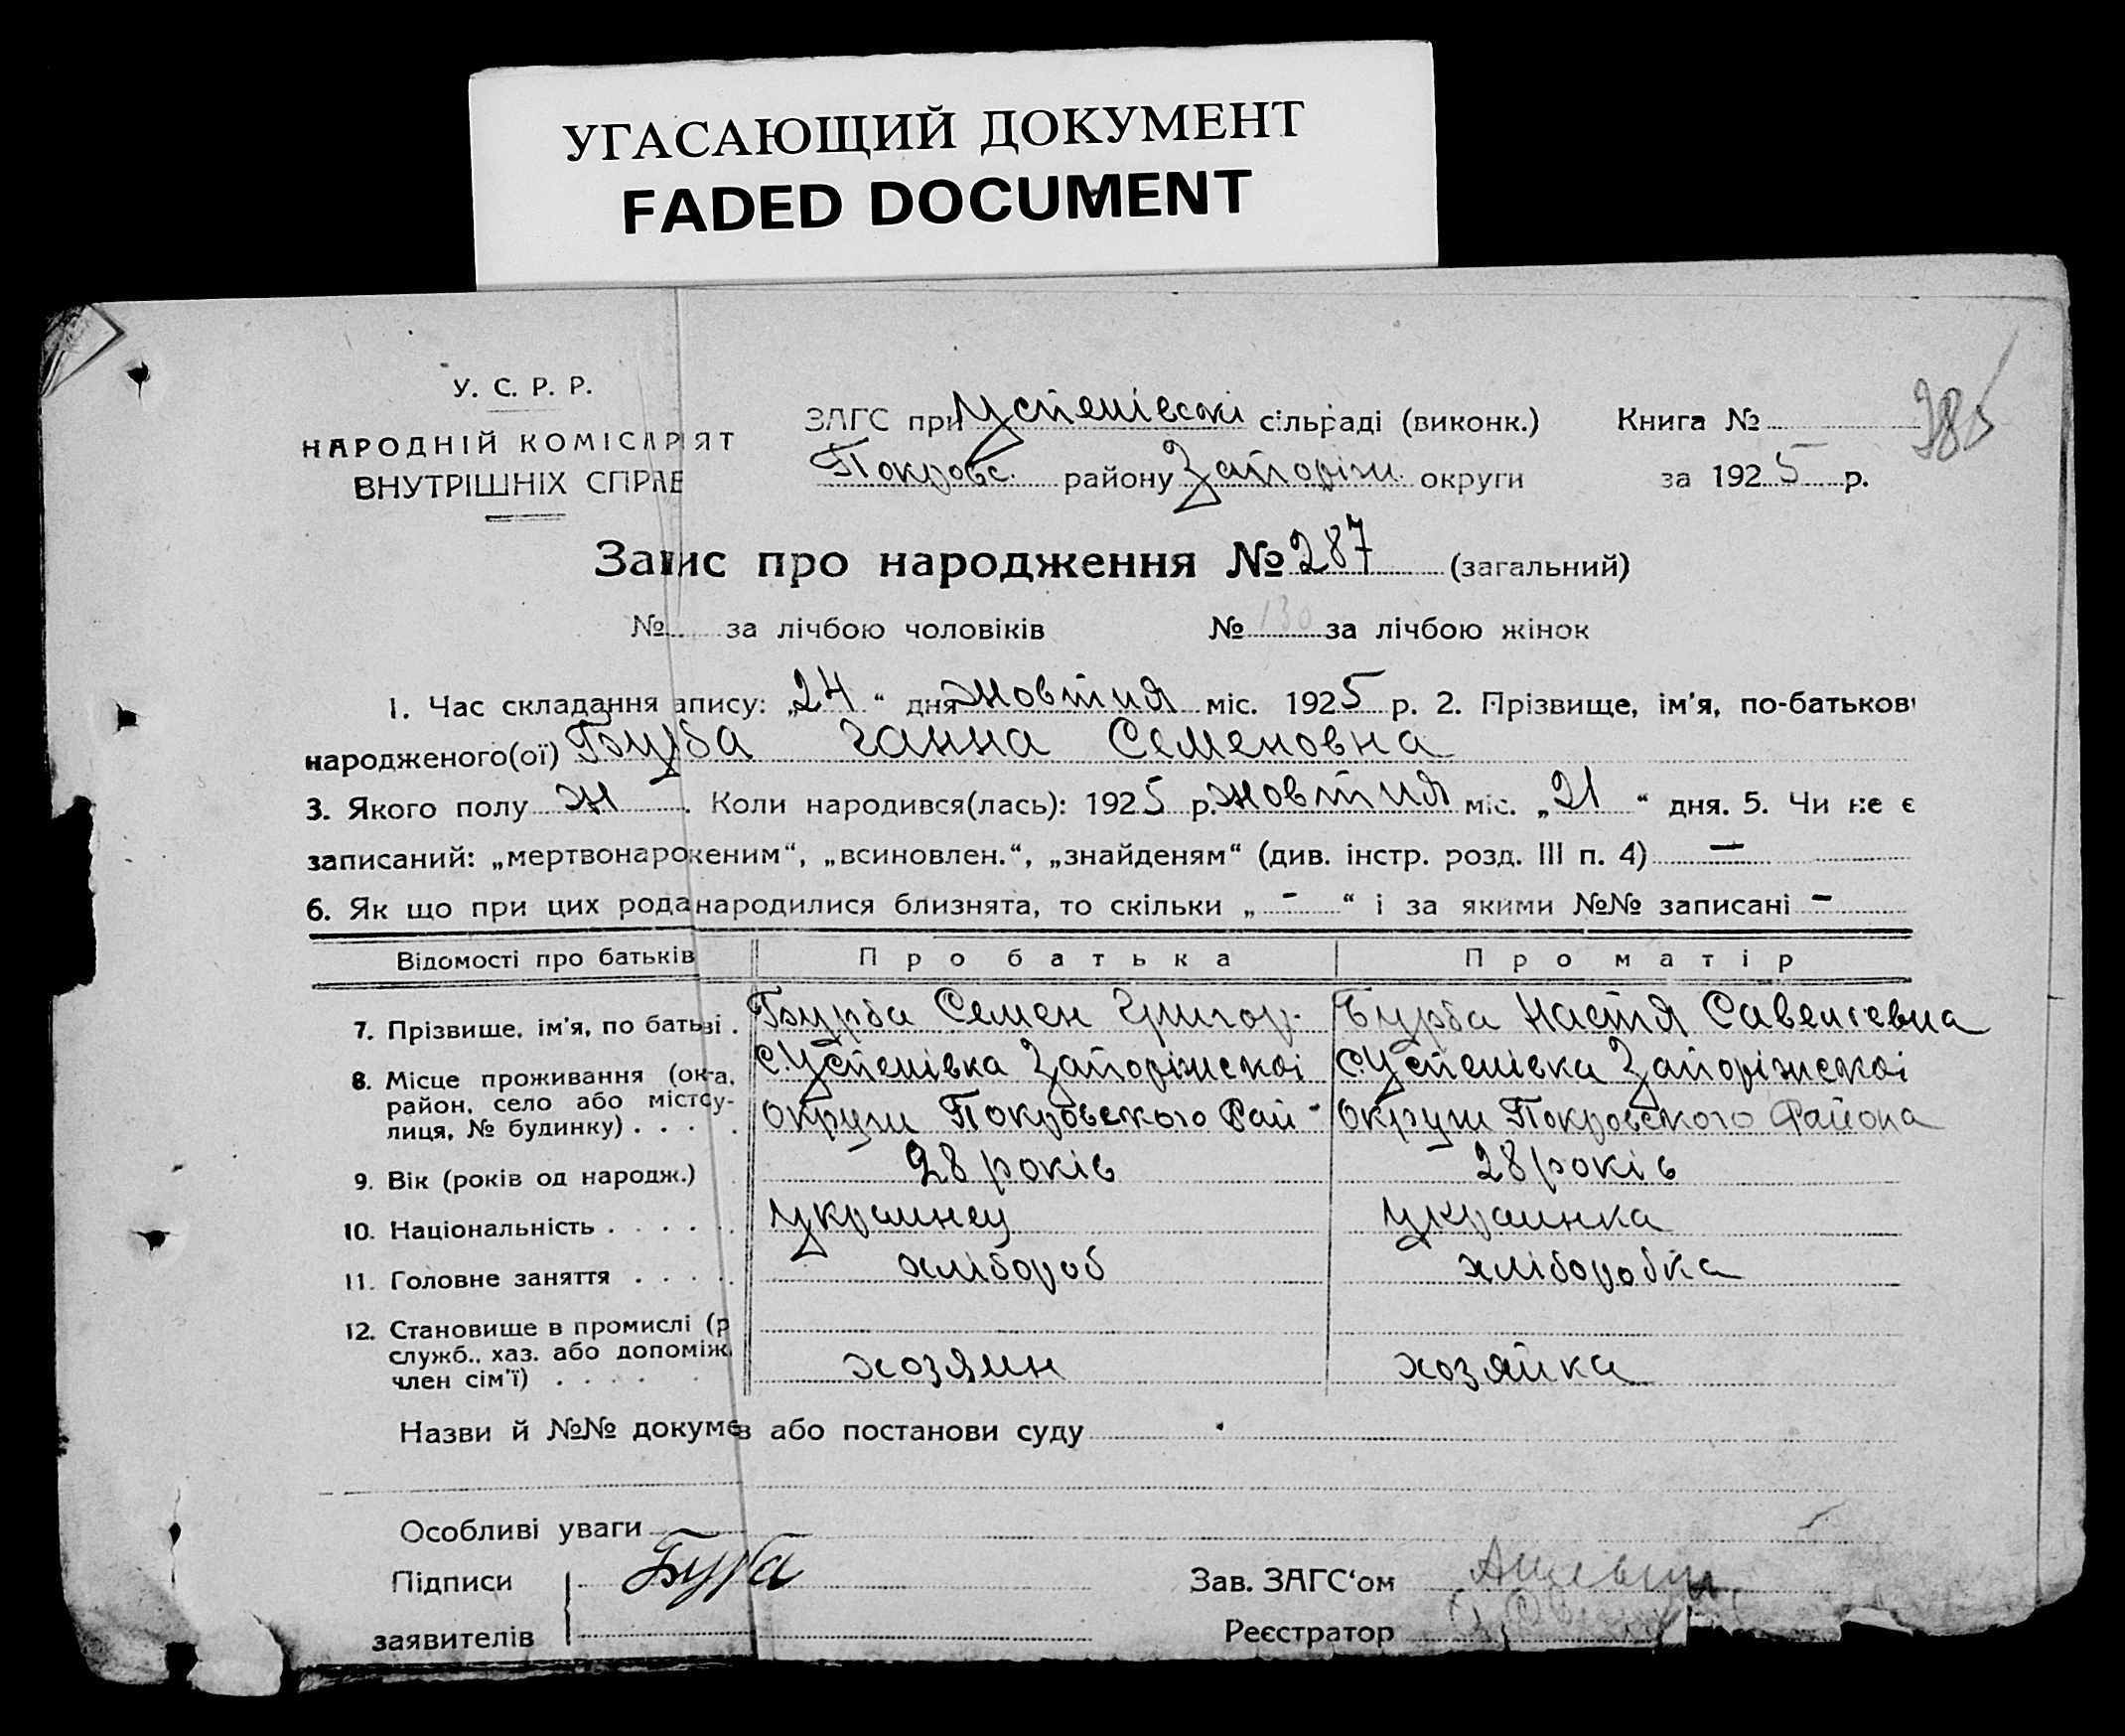 УГАСАЮЩИЙ ДОКУМЕНТ
FADED DOCUMENT
У. С. Р. Р.
НАРОДНІЙ КОМІСАРІЯТ
ВНУТРІШНІХ СПРАВ
ЗАГС при Успенівські сільраді (виконк.) Книга № 385
Покровс. району Запоріжж. округи за 1925 р.
Запис про народження № 287 (загальний)
№ за лічбою чоловіків № 130 за лічбою жінок
1. Час складання запису: „24“ дня жовтня міс. 1925 р. 2. Прізвище, ім'я, по-батькові
народженого(ої) Бурба Ганна Семеновна
3. Якого полу ж. Коли народився(лась): 1925 р. жовтня міс. „21“ дня. 5. Чи не є
записаний: „мертвонароженим“, „всиновлен.“, „знайденям“ (див. інстр. розд. III п. 4) —
6. Як що при цих рода народилися близнята, то скільки „-“ і за якими №№ записані -
Відомості про батьків Про батька Про матір
7. Прізвище, ім'я, по батьві . Бурба Семен Григор. Бурба Настя Савелиевна
8. Місце проживання (ок-а, с. Успенівка Запоріжскоі с. Успенівка Запоріжскоі
район, село або місто у-
лиця, № будинку) . . . . округи Покровского Рай- округи Покровского Района
9. Вік (років од народж.) 28 років 28 років
10. Національність . . . . . украинец украинка
11. Головне заняття . . . . хлібороб хліборобка
12. Становище в промислі (р
служб., хаз. або допоміж.
член сім'ї) . . . . хозяин хозяйка
Назви й №№ докумев або постанови суду
Особливі уваги
Підписи Бурба Зав. ЗАГС'ом
заявителів Реєстратор